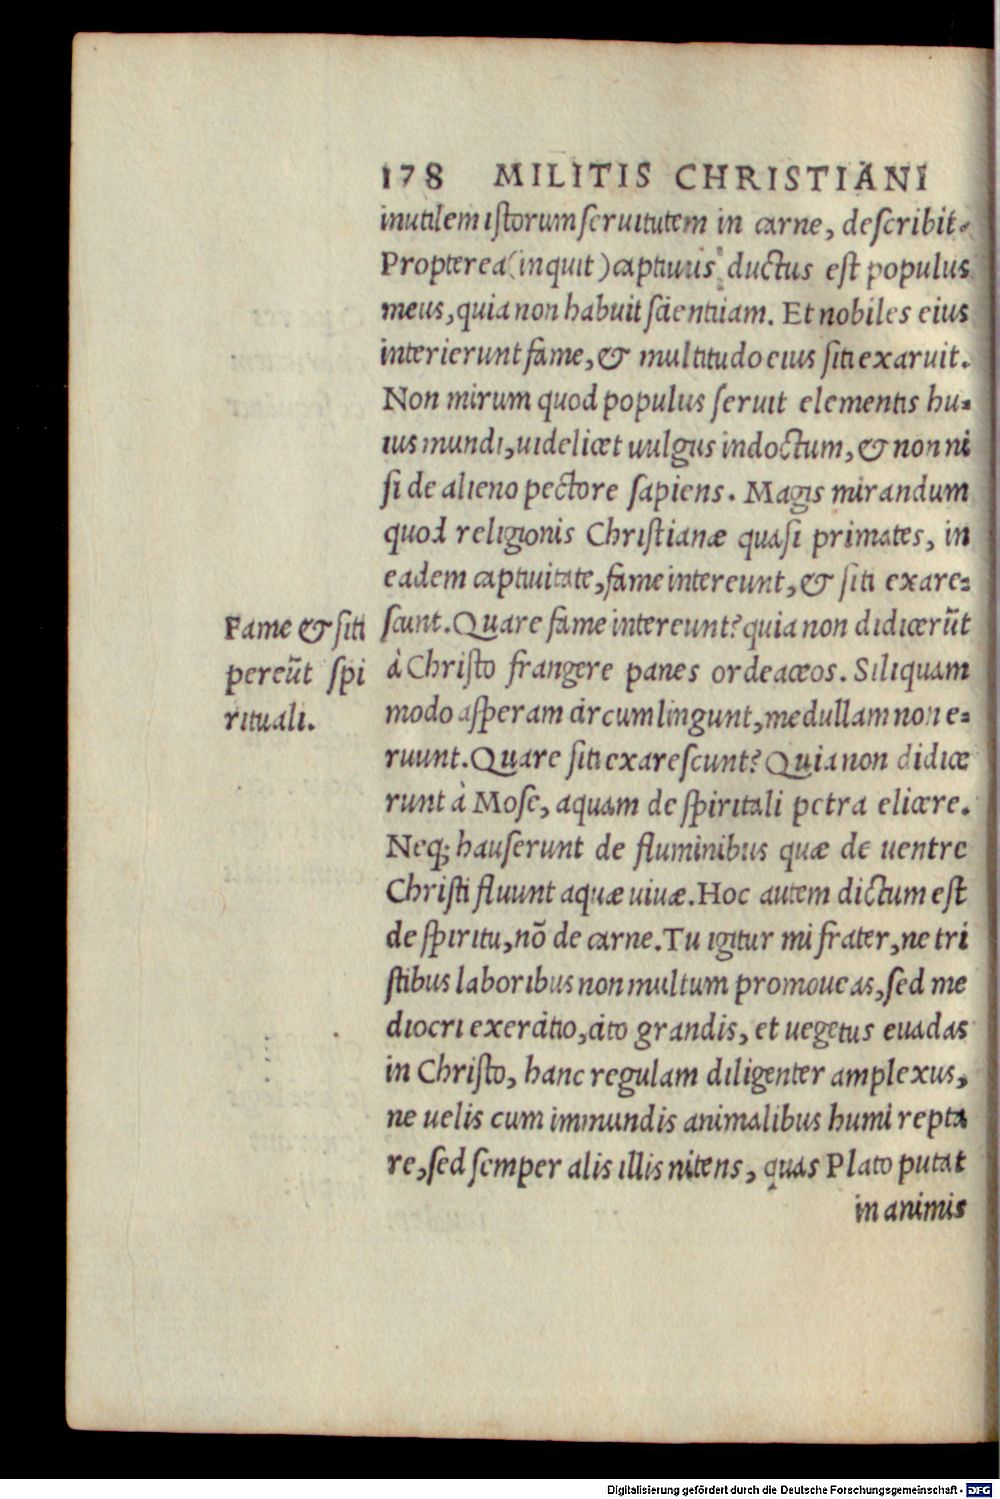 178 MILITIS CHRISTIANI
inutilem istorum seruitutem in carne, describit.
Propterea (inquit) captiuus ductus est populus
meus, quia non habuit scientiam. Et nobiles eius
interierunt fame, & multitudo eius siti exaruit.
Non mirum quod populus seruit elementis hu-
ius mundi, uidelicet uulgus indoctum, & non ni
si de alieno pectore sapiens. Magis mirandum
quod religionis Christianæ quasi primates, in
eadem captiuitate, fame intereunt, & siti exare-
scunt. Quare fame intereunt? quia non didicerũt
à Christo frangere panes ordeaceos. Siliquam
modo asperam circumlingunt, medullam non e-
ruunt. Quare siti exarescunt? Quia non didice
runt à Mose, aquam de spiritali petra elicere.
Neq; hauserunt de fluminibus quæ de uentre
Christi fluunt aquæ uiuæ. Hoc autem dictum est
de spiritu, nõ de carne. Tu igitur mi frater, ne tri
stibus laboribus non multum promoueas, sed me
diocri exercitio, cito grandis, et uegetus euadas
in Christo, hanc regulam diligenter amplexus,
ne uelis cum immundis animalibus humi repta
re, sed semper alis illis nitens, quas Plato putat
in animis
Fame & siti
pereũt spi
rituali.
Digitalisierung gefördert durch die Deutsche Forschungsgemeinschaft - DFG